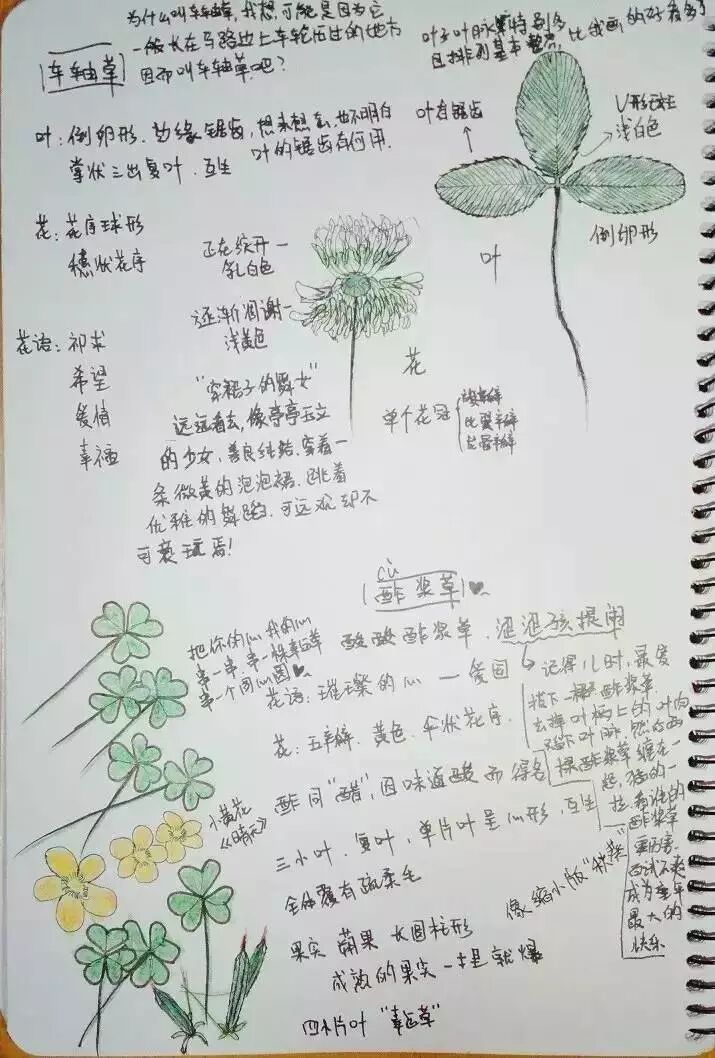 为什么叫车轴草,我想,可能是因为它
一般长在马路边上车轮压过的地方
因而叫车轴草吧?
车轴草
叶子叶脉特别多
且排列基本整齐,比我画的好看多了
叶:倒卵形.边缘锯齿,想来想去,也不明白
叶的锯齿有何用.
掌状三出复叶.互生
叶有锯齿
U形斑
浅白色
倒卵形
叶
花:花序球形
穗状花序
正在绽开—
乳白色
逐渐凋谢—
浅黄色
花
花语:祈求
希望
爱情
幸福
"穿裙子的舞女"
远远看去,像亭亭玉立
的少女,善良纯洁.穿着一
条微黄的泡泡裙.跳着
优雅的舞蹈,可远观却不
可亵玩焉!
单个花冠
旗瓣
比翼瓣
龙骨瓣
cù
酢浆草
把你的心我的心
串一串,串一株幸运草
串一个同心圆
酸酸酢浆草,涩涩孩提闹
花语:璀璨的心—爱国
花:五瓣.黄色.伞状花序.
酢同"醋",因味道酸而得名
三小叶.复叶,单片叶呈心形,互生
全体覆有疏柔毛
果实 蒴果 长圆柱形
成熟的果实一捏就爆
四片叶"幸运草"
小黄花
《晴天》
像缩小版"秋葵"
记得儿时,最爱
摘下一棵酢浆草,
去掉叶柄上的叶肉
留下叶脉,然后两
棵酢浆草缠在一
起,猛的一
拉,看谁的
酢浆草
更厉害.
成为童年
最大的
快乐